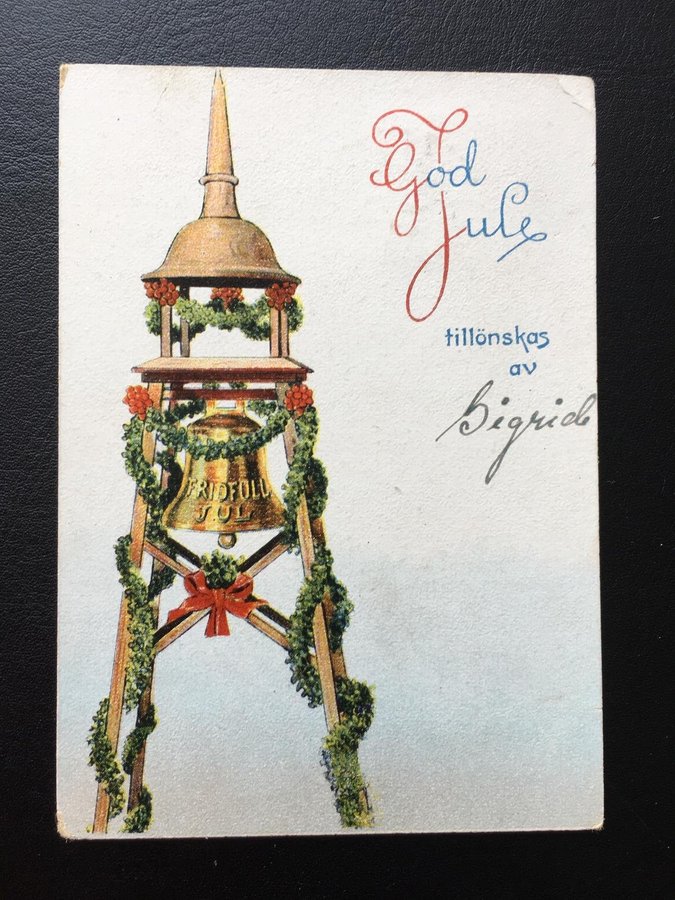 God
Jul
tillönskas
av
Sigrid
FRIDFULL
JUL